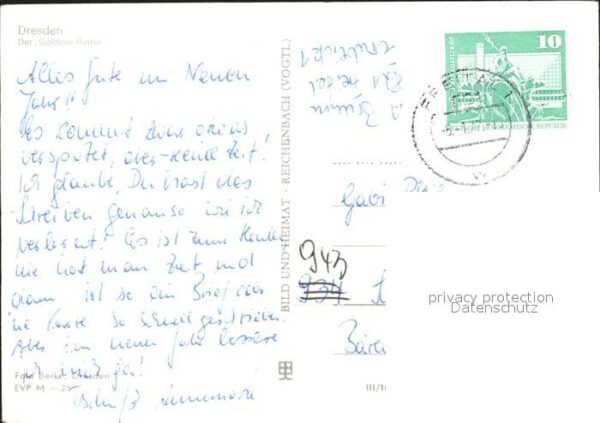 Dresden
Der „Goldene Reiter"
Alles Gute im Neuen
Jahr!!
Es kommt zwar etwas
verspätet, aber keine Zeit.
Ich glaube, Du hast das
Schreiben genauso wie ich
verlernt! Es ist zum Heulen
nie hat man Zeit und
dann ist so ein Brief oder
'ne Karte so schnell geschrieben
Aber im neuen Jahr bessere
ich mich ja!
Foto Berke, Dresden
EVP M —.25
BILD UND HEIMAT · REICHENBACH (VOGTL)
III/1
10
DEUTSCHE DEMOKRATISCHE REPUBLIK
FREITAL 1
Gabi
943
privacy protection
Datenschutz